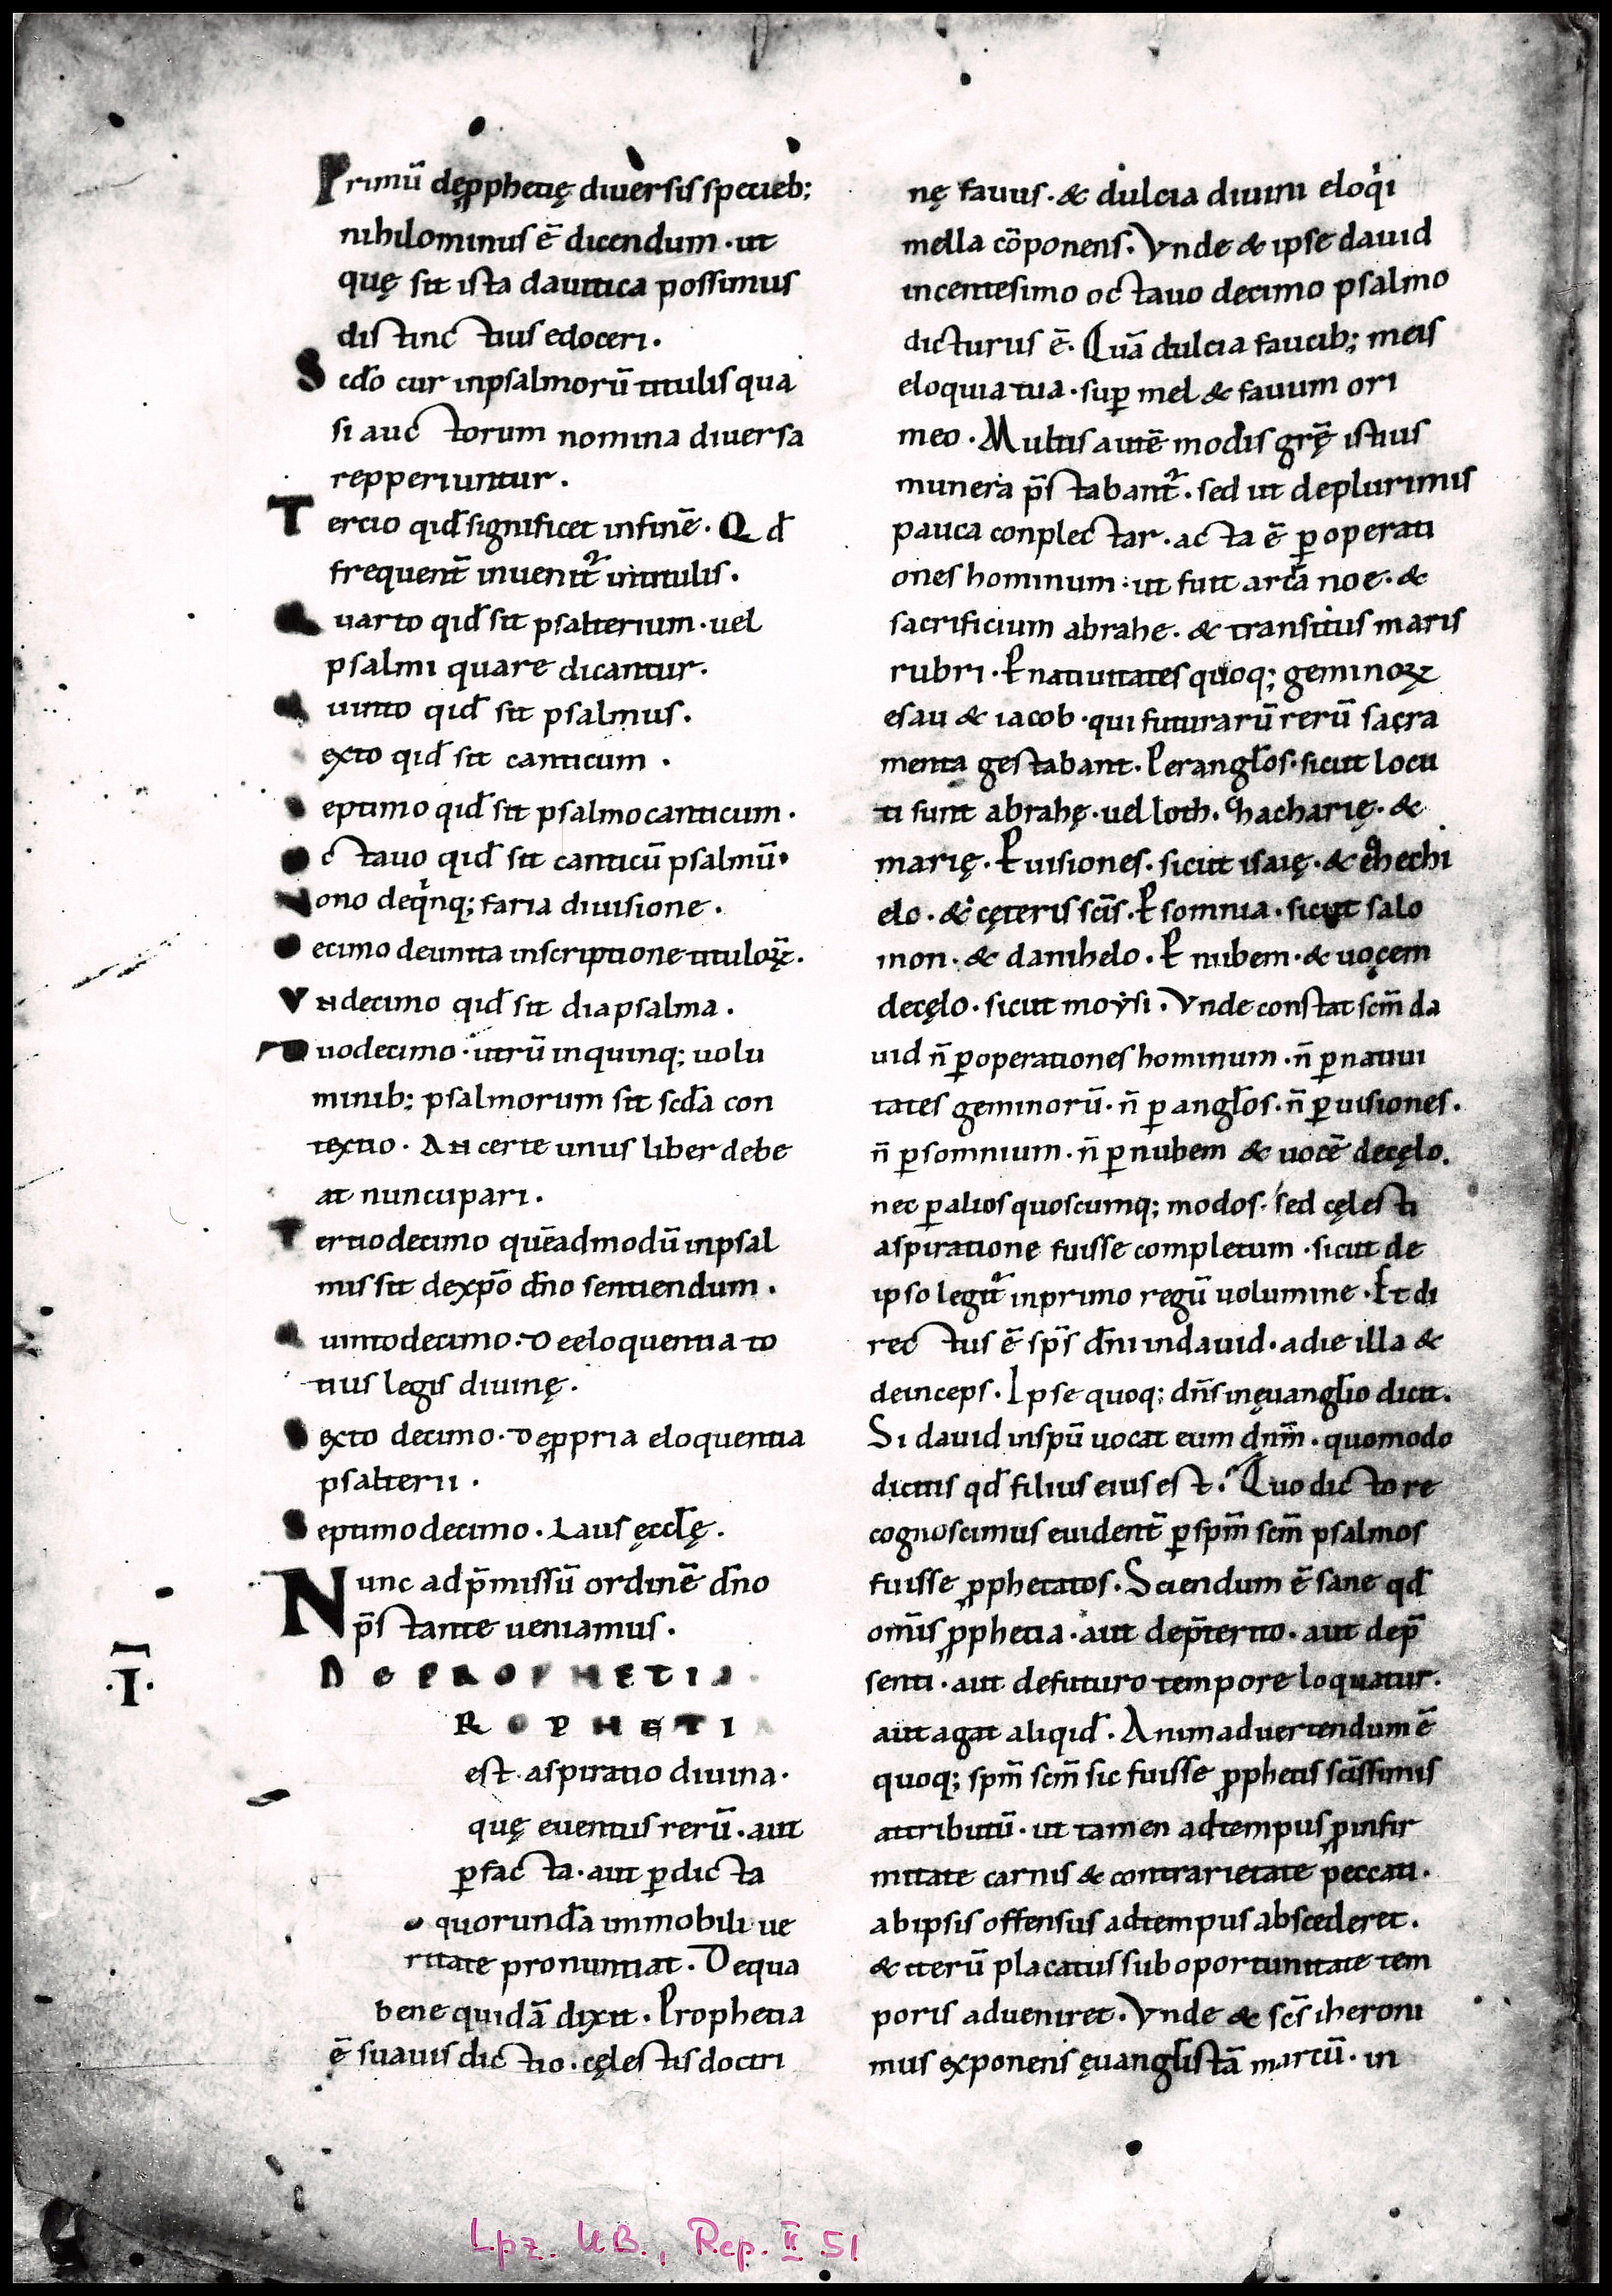 Primū de ꝓphetię diuersis specieb;
nihilominus ē dicendum · ut
quę sit ista dauitica possimus
distinctius edoceri ·
Scđo cur inpsalmorū titulis qua
si auctorum nomina diuersa
repperiuntur ·
Tercio qid̄ significet infinē · Qd̄
frequent̄ inuenit᷑ intitulis ·
uarto qid̄ sit psalterium · uel
psalmi quare dicantur ·
uinto qid̄ sit psalmus ·
exto qid̄ sit canticum ·
eptimo qid̄ sit psalmocanticum ·
ctauo qid̄ sit canticū psalmū ·
Nono deqͥnq; faria diuisione ·
ecimo deunita inscriptione tituloꝝ ·
Vndecimo qid̄ sit diapsalma ·
uodecimo · utrū inquinq; uolu
minib; psalmorum sit scđa con
textio · An certe unus liber debe
at nuncupari ·
Tertiodecimo quēadmodū inpsal
mis sit dexp̄o dn̄o sentiendum ·
uintodecimo · De eloquentia to
tius legis diuinę ·
exto decimo · De ꝓpria eloquentia
psalterii ·
Septimodecimo · Laus ęccłę ·
Nunc adp̄missū ordinē dn̄o
p̄stante ueniamus ·
·Ī·
DE PROPHETIA ·
ROPHETIA
est aspiratio diuina ·
quę euentus rerū · aut
ꝑfacta · aut ꝑdicta
quorundā immobili ue
ritate pronuntiat · Dequa
bene quidā dixit · Prophetia
ē suauis dictio · cęlestis doctri
nę fauus · & dulcia diuini eloqͥi
mella cōponens · Vnde & ipse dauid
incentesimo octauo decimo psalmo
dicturus ē · Quā dulcia faucib; meis
eloquia tua · suꝑ mel & fauum ori
meo · Multis autē modis grę̄ istius
munera p̄stabant᷑ · sed ut deplurimis
pauca conplectar · acta ē ꝑ operati
ones hominum · ut fuit arca noe · &
sacrificium abrahe · & transitus maris
rubri · Ꝑ natiuitates quoq; geminoꝝ
esau & iacob · qui futurarū rerū sacra
menta gestabant · Peranglos · sicut locu
ti sunt abrahę · uel loth · zacharię · &
marię · Ꝑ uisiones · sicut isaię · & ezechi
elo · & cęteris scīs · Ꝑ somnia · sicut salo
mon · & danihelo · Ꝑ nubem · & uocem
decęlo · sicut moẏsi · Vnde constat scm̄ da
uid n̄ ꝑoperationes hominum · n̄ ꝑnatiui
tates geminorū · n̄ ꝑ anglos · n̄ ꝑuisiones ·
n̄ ꝑsomnium · n̄ ꝑnubem & uocē decęlo ·
nec ꝑalios quoscumq; modos · sed cęlesti
aspiratione fuisse completum · sicut de
ipso legit᷑ inprimo regū uolumine · Et di
rectus ē sp̄s dn̄i indauid · adie illa &
deinceps · Ipse quoq; dn̄s inęuanglio dicit ·
Si dauid inspū uocat eum dnm̄ · quomodo
dicitis qd̄ filius eius est? Quo dicto re
cognoscimus euident̄ ꝑspm̄ scm̄ psalmos
fuisse ꝓphetatos · Sciendum ē sane qd̄
omīs ꝓphetia · aut dep̄terito · aut dep̄
senti · aut defuturo tempore loquatur ·
aut agat aliqid̄ · Animaduertendum ē
quoq; spm̄ scm̄ sic fuisse ꝓphetis scīssimis
attributū · ut tamen adtempus ꝓ infir
mitate carnis & contrarietate peccati ·
abipsis offensus adtempus abscederet ·
& iterū placatus sub oportunitate tem
poris adueniret · Vnde & scs̄ iheroni
mus exponens ęuanglistā marcū · in
Lpz. UB., Rep. II 51